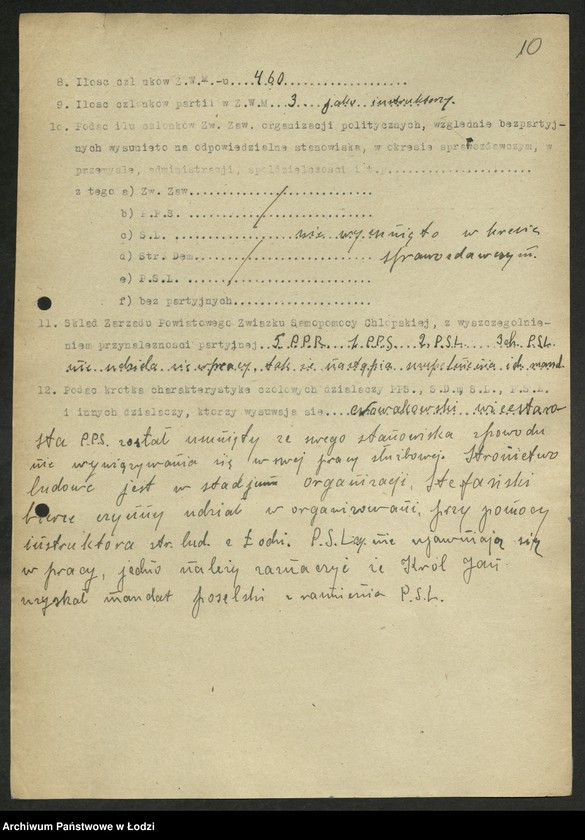 10
8. Ilosc czlonkow Z.W.M.-u....460....................
9. Ilosc czlonkow partii w Z.W.M...3...jako instruktorzy.
10. Podac ilu czlonkow Zw. Zaw. organizacji politycznych, wzglednie bezpartyj-
nych wysunieto na odpowiedzialne stanowiska, w okresie sprawozdawczym, w
przemysle, administracji, spoldzielczosci i t.p......................
z tego a) Zw. Zaw............................
b) P.P.S. ............................
c) S.L. ..................nie wysunięto w kresie
d) Str. Dem............................ sprawozdawczym.
e) P.S.L. ............................
f) bez partyjnych.....................
11. Sklad Zarzadu Powiatowego Zwiazku Samopomocy Chlopskiej, z wyszczegolnie-
niem przynaleznosci partyjnej..5 P.P.R. 1 P.P.S. 2 P.S.L.
nie udziela się w pracy, tak że nastąpią
12. Podac krotka charakterystyke czolowych dzialaczy PPS., S.D., S.L., P.S.L.
i innych dzialaczy, ktorzy wysuwaja sie.... wicestaro
sta P.P.S. został usunięty ze swego stanowiska spowodu
nie wywiązywania się w swej pracy służbowej. Stronictwo
ludowe jest w stadjum organizacji, Stefański
bierze czynny udział w organizowani, przy pomocy
instruktora str. lud. z Łodzi. P.S.L-zy nie ujawniają się
w pracy, jedno należy zaznaczyć że Król Jan
uzyskał mandat poselski z ramienia P.S.L.
Archiwum Państwowe w Łodzi